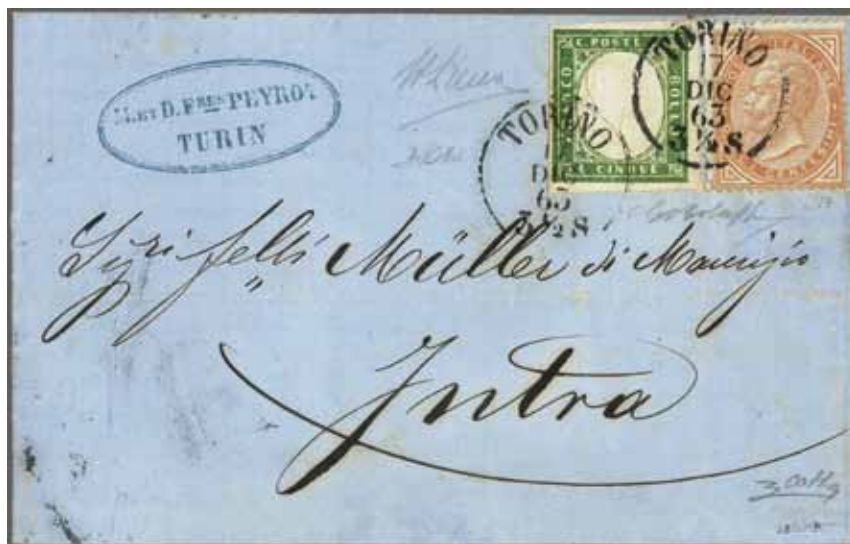 M. ET D. FRES PEYROT
TURIN
C. POSTE
BOLLO
C. CINQUE
TORINO
17
DIC
63
3½ S.
TORINO
DIC
63
3½ S.
Sgri felli Müller di Maurizio
Intra